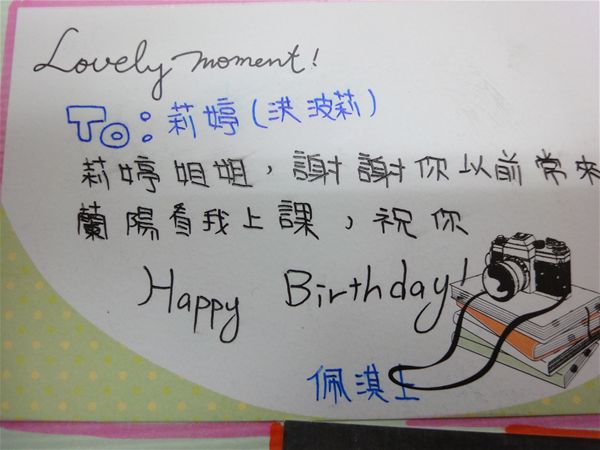 Lovely moment!
To:莉婷(洪波莉)
莉婷姐姐,謝謝你以前常來
蘭陽看我上課,祝你
Happy Birthday!
佩淇上